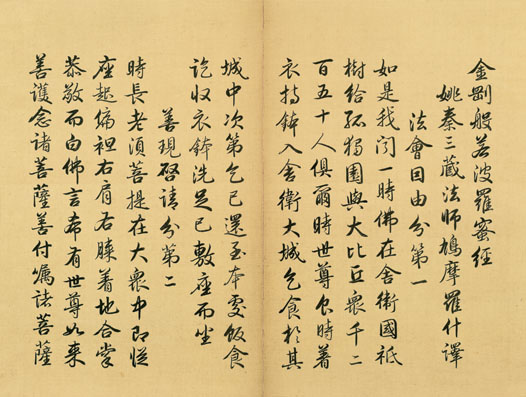 金剛般若波羅蜜經
姚秦三藏法師鳩摩羅什譯
法會因由分第一
如是我聞一時佛在舍衛國祗
樹給孤獨園與大比丘衆千二
百五十人俱爾時世尊食時著
衣持鉢入舍衛大城乞食於其
城中次第乞已還至本處飯食
訖收衣鉢洗足已敷座而坐
善現啓請分第二
時長老湏菩提在大衆中即從
座起偏袒右肩右膝着地合掌
恭敬而白佛言希有世尊如來
善護念諸菩薩善付囑諸菩薩